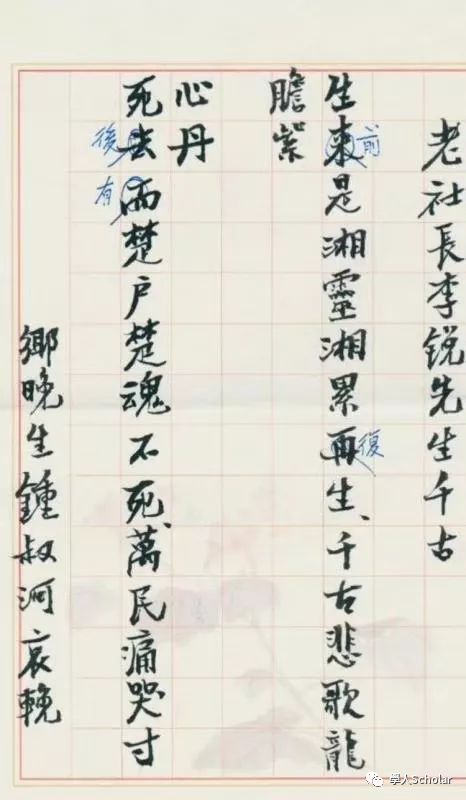 老社長李銳先生千古
前
生來是湘靈湘累再生、千古悲歌龍
復
膽紫
後
有
死去而楚户楚魂不死、萬民痛哭寸
心丹
鄉晚生鍾叔河哀輓
學人Scholar